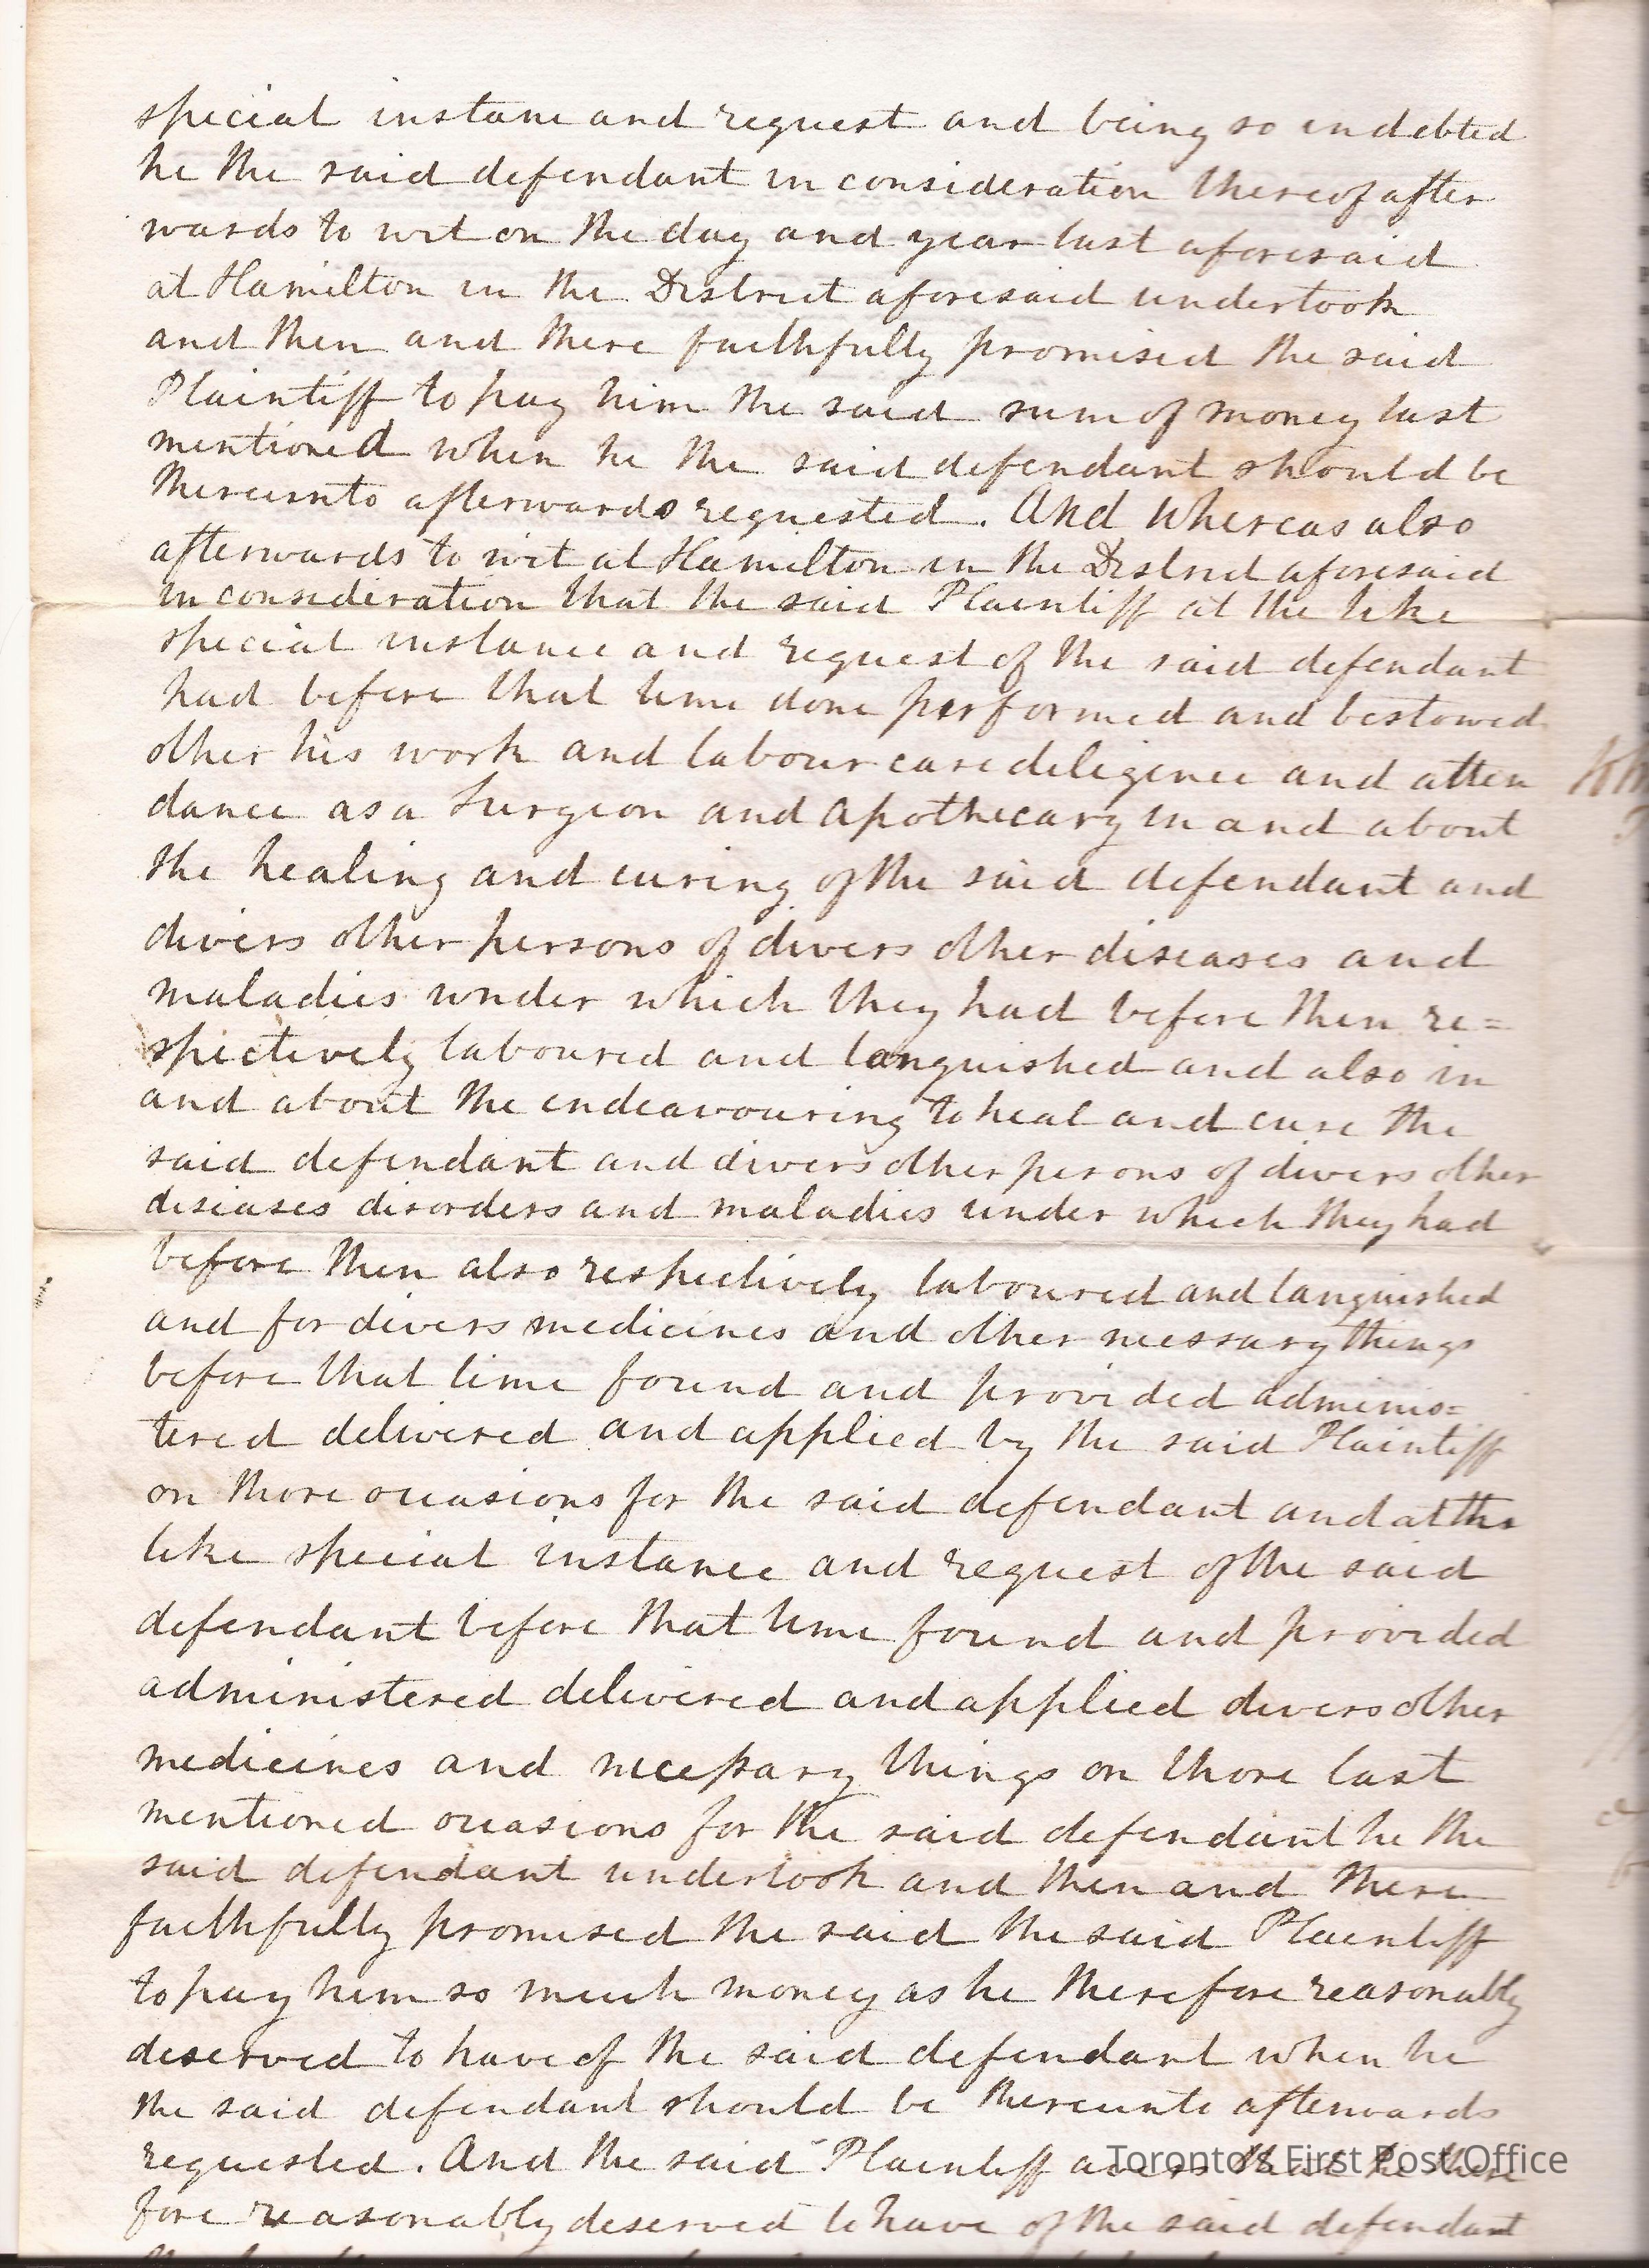 special instane and request and being so indebted
he the said defendant in consideration thereof after
wards to wit on the day and year last aforesaid
at Hamilton in the District aforesaid undertook
and then and there faithfully promised the said
Plaintiff to pay him the said sum of money last
mentioned when he the said defendant should be
thereunto afterwards requested. And Whereas also
afterwards to wit at Hamilton in the District aforesaid
in consideration that the said Plaintiff at the like
special instance and request of the said defendant
had before that time done performed and bestowed
other his work and labour care diligence and atten
dance as a Surgeon and Apothecary in and about
the healing and curing of the said defendant and
divers other persons of divers other diseases and
maladies under which they had before then re=
spectively laboured and languished and also in
and about the endeavouring to heal and cure the
said defendant and divers other perons of divers other
diseases disorders and maladies under which they had
before then also respectively laboured and languished
and for divers medicines and other necssary things
before that time found and provided adminis=
tered delivered and applied by the said Plaintiff
on those occasions for the said defendant and at the
like special instance and request of the said
defendant before that time found and provided
administered delivered and applied divers other
medicines and necessary things on those last
mentioned occasions for the said defendant he the
said defendant undertook and then and there
faithfully promised the said the said Plaintiff
to pay him so much money as he therefore reasonably
deserved to have of the said defendant when he
the said defendant should be thereunto afterwards
requested. And the said Plaintiff avers that he there
fore reasonably deserved to have of the said defendant
Toronto's First Post Office